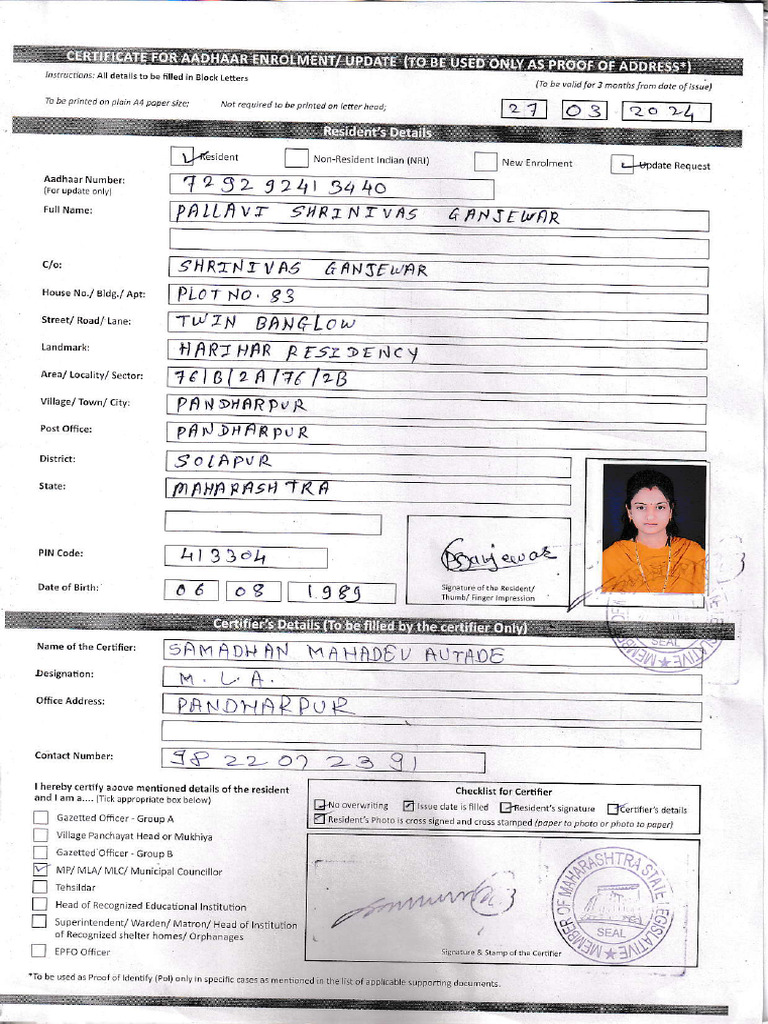 CERTIFICATE FOR AADHAAR ENROLMENT/ UPDATE (TO BE USED ONLY AS PROOF OF ADDRESS*)
Instructions: All details to be filled in Block Letters
(To be valid for 3 months from date of issue)
To be printed on plain A4 paper size; Not required to be printed on letter head;
27 03 2024
Resident's Details
Resident Non-Resident Indian (NRI) New Enrolment Update Request
Aadhaar Number: 7292 9241 3440
(For update only)
Full Name: PALLAVI SHRINIVAS GANJEWAR
C/o: SHRINIVAS GANJEWAR
House No./ Bldg./ Apt: PLOT NO. 83
Street/ Road/ Lane: TWIN BANGLOW
Landmark: HARIHAR RESIDENCY
Area/ Locality/ Sector: 76/B/2A/76/2B
Village/ Town/ City: PANDHARPUR
Post Office: PANDHARPUR
District: SOLAPUR
State: MAHARASHTRA
PIN Code: 413304
Date of Birth: 06 08 1989
Signature of the Resident/
Thumb/ Finger Impression
Certifier's Details (To be filled by the certifier Only)
Name of the Certifier: SAMADHAN MAHADEV AUTADE
Designation: M. L. A.
Office Address: PANDHARPUR
Contact Number: 98 22 07 23 91
I hereby certify above mentioned details of the resident
and I am a.... (Tick appropriate box below)
Gazetted Officer - Group A
Village Panchayat Head or Mukhiya
Gazetted Officer - Group B
MP/ MLA/ MLC/ Municipal Councillor
Tehsildar
Head of Recognized Educational Institution
Superintendent/ Warden/ Matron/ Head of Institution
of Recognized shelter homes/ Orphanages
EPFO Officer
Checklist for Certifier
No overwriting Issue date is filled Resident's signature Certifier's details
Resident's Photo is cross signed and cross stamped (paper to photo or photo to paper)
MEMBER OF MAHARASHTRA STATE LEGISLATIVE
SEAL
Signature & Stamp of the Certifier
*To be used as Proof of Identify (PoI) only in specific cases as mentioned in the list of applicable supporting documents.